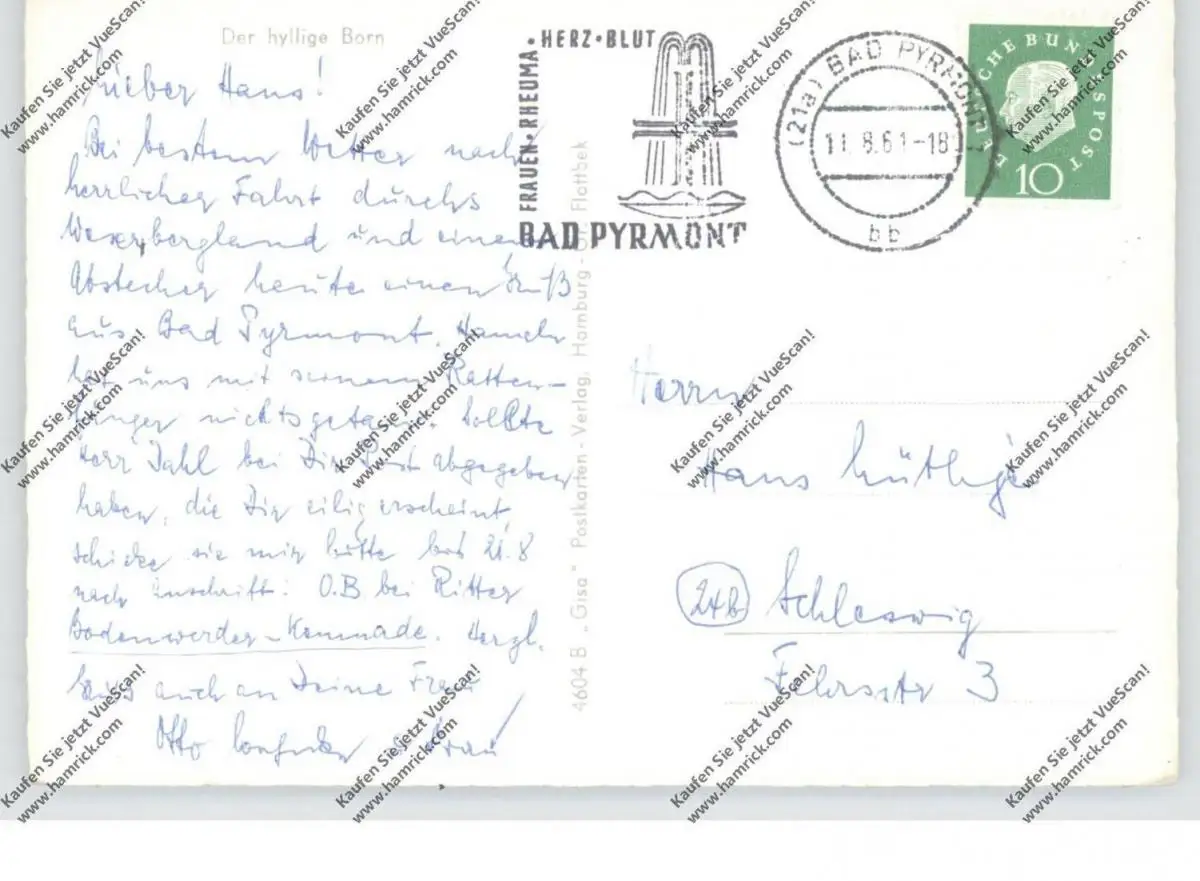 Der hyllige Born
Lieber Hans!
Bei bestem Wetter nach
herrlicher Fahrt durchs
Weserbergland und einem
Abstecher heute einen Gruß
aus Bad Pyrmont. Hameln
hat uns mit seinem Ratten-
fänger nichts getan. Sollte
Herr Dahl bei Dir Post abgegeben
haben, die Dir eilig erscheint,
schicke sie mir bitte bis 21.8
nach Anschrift: O.B bei Ritter
Bodenwerder-Kemnade. Herzl.
Gruß auch an Deine Frau
Otto u Frau
4604 B „Gisa" Postkarten-Verlag, Hamburg - Flottbek
FRAUEN·RHEUMA·HERZ·BLUT
BAD PYRMONT
(21a) BAD PYRMONT 1
11.8.61-18
bb
DEUTSCHE BUNDESPOST
10
Herrn
Hans Lüthje
24b Schleswig
Fehrsstr 3
Kaufen Sie jetzt VueScan!
www.hamrick.com